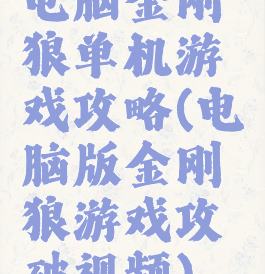 电脑金刚
狼单机游
戏攻略(电
脑版金刚
狼游戏攻
破视频)